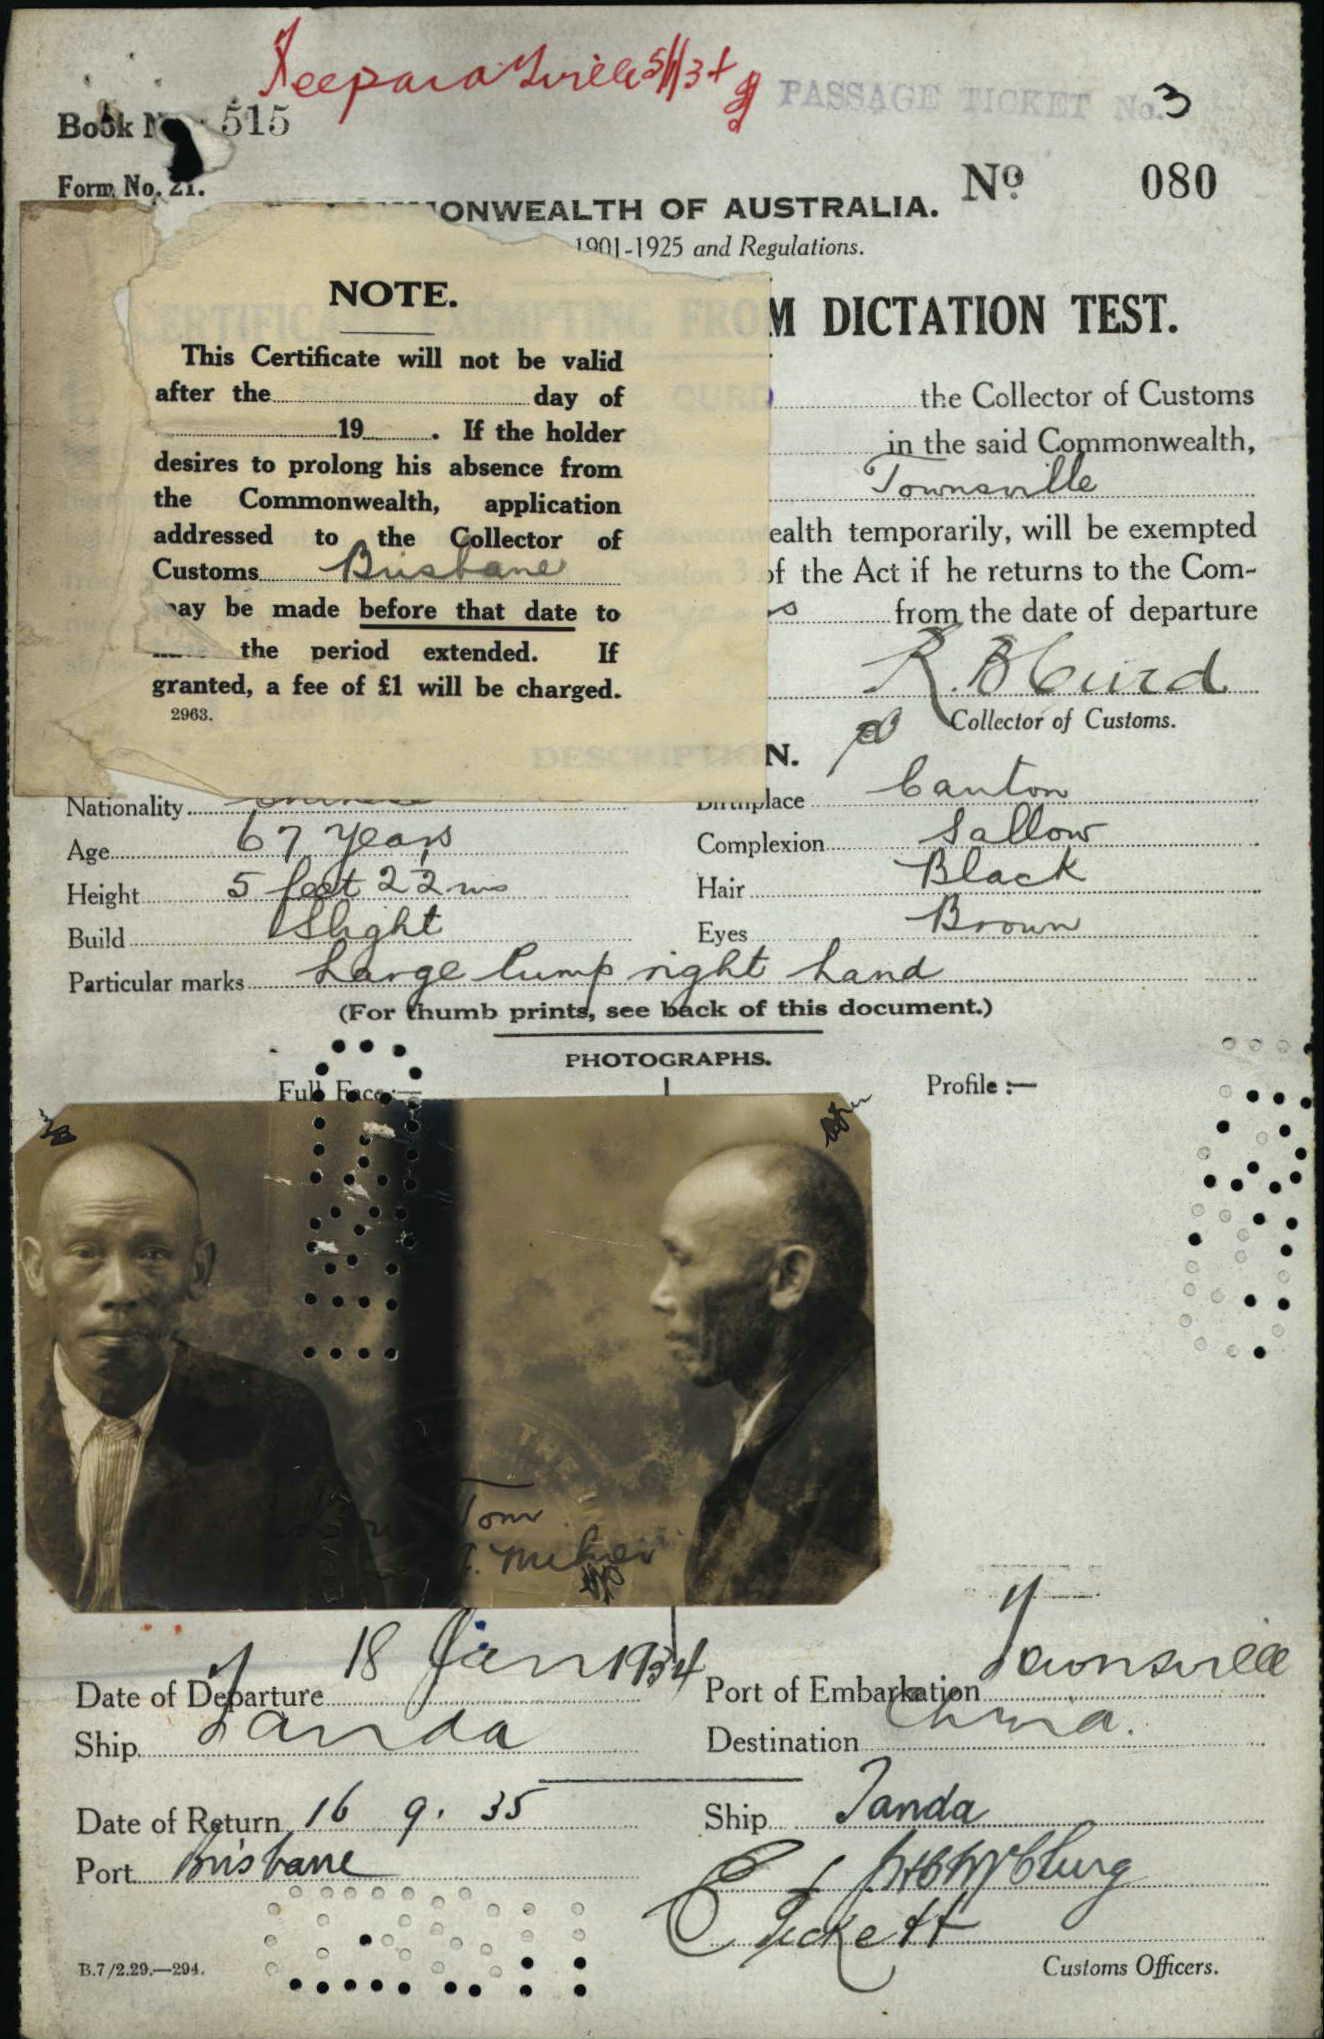 Townsville 5/1/34
PASSAGE TICKET No. 3
Book No. 515
Form No. 21.
No. 080
COMMONWEALTH OF AUSTRALIA.
1901-1925 and Regulations.
CERTIFICATE EXEMPTING FROM DICTATION TEST.
NOTE.
This Certificate will not be valid
after the day of
19 . If the holder
desires to prolong his absence from
the Commonwealth, application
addressed to the Collector of
Customs Brisbane
may be made before that date to
the period extended. If
granted, a fee of £1 will be charged.
2963.
the Collector of Customs
in the said Commonwealth,
Townsville
ealth temporarily, will be exempted
of the Act if he returns to the Com-
from the date of departure
Collector of Customs.
DESCRIPTION.
Nationality Chinese
Birthplace Canton
Age 67 years
Complexion Sallow
Height 5 feet 2½ ins
Hair Black
Build Slight
Eyes Brown
Particular marks Large lump right hand
(For thumb prints, see back of this document.)
PHOTOGRAPHS.
Full Face:—
Profile:—
Tom
Date of Departure 18 Jan 1934
Port of Embarkation Townsville
Ship Tanda
Destination China.
Date of Return 16 9. 35
Ship Tanda
Port Brisbane
Customs Officers.
B.7/2.29.—294.